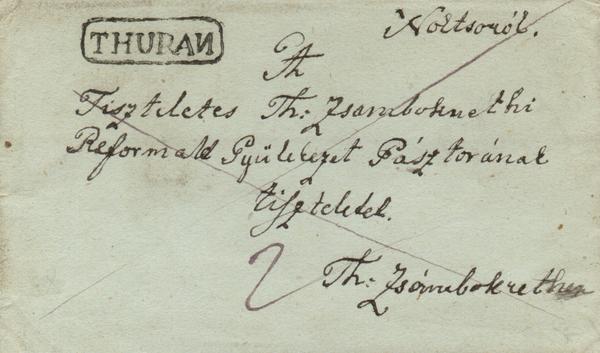 THURAN
Noltsoról.
Tiszteletes Th: Zsambokrethi
Reformált Gyülekezet Pásztorának
tisztelettel.
2
Th: Zsámbokrethen